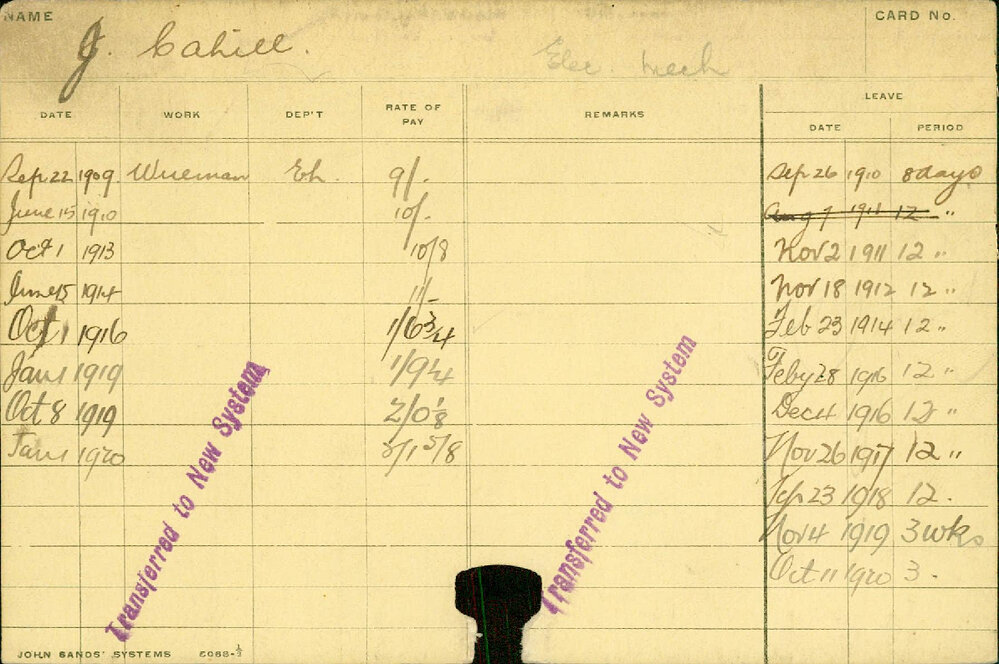 NAME J. Cahill. Elec. Mech CARD No.
LEAVE
DATE WORK DEP'T RATE OF PAY REMARKS DATE PERIOD
Sep. 22 1909. Wireman Eh. 9/- Sep 26 1910 8 days
June 15 1910 10/- Aug 7 1911 12 "
Oct 1 1913 10/8 Nov 2 1911 12 "
June 15 1914 11/- Nov 18 1912 12 "
Oct 1 1916 1/6 3/4 Feb 23 1914 12 "
Jan 1 1919 1/9 1/4 Feby 28 1916 12 "
Oct 8 1919 2/0 1/8 Dec 4 1916 12 "
Jan 1 1920 5/8 Nov 26 1917 12 "
23 1918 12.
Nov 4 1919 3 wks
Oct 11 1920 3.
Transferred to New System
Transferred to New System
JOHN SANDS' SYSTEMS